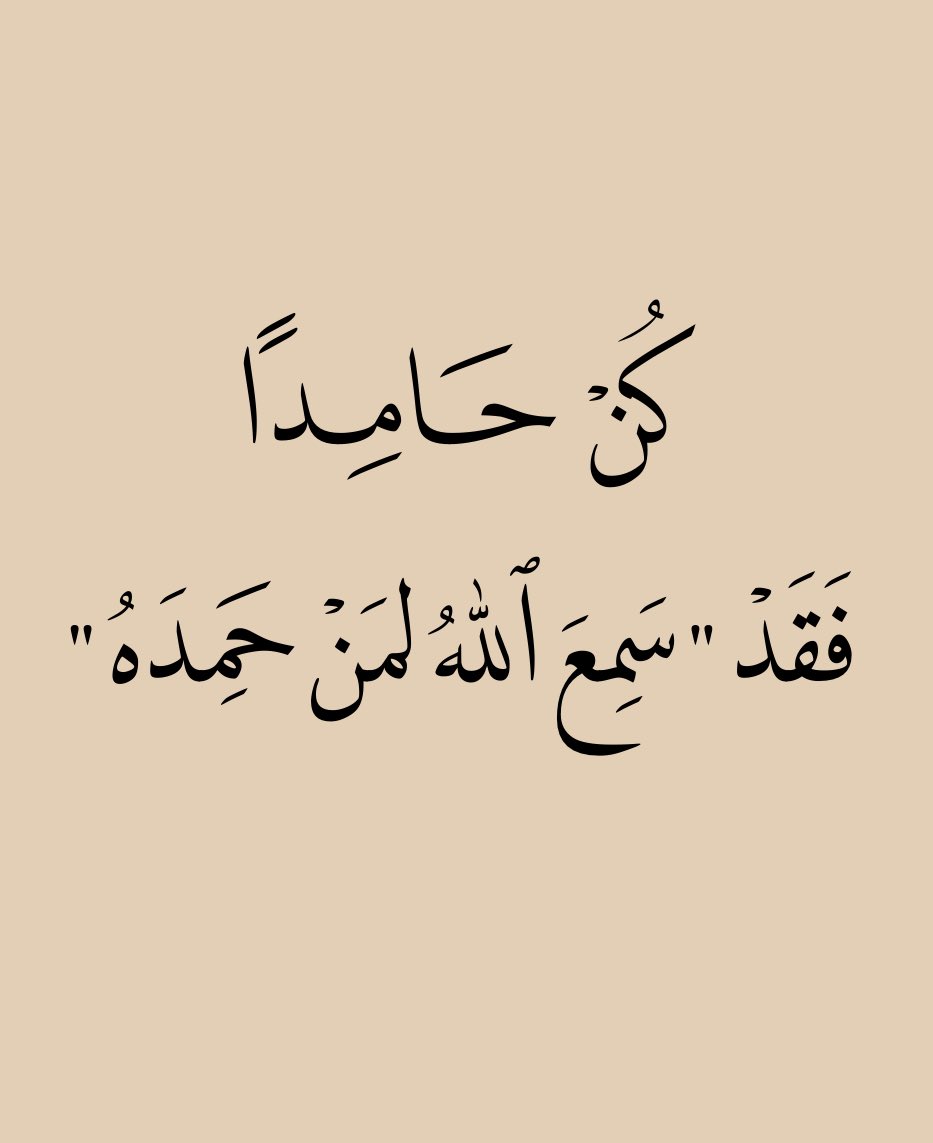 كُنْ حَـامِـداً
فَقَدْ "سَمِعَ ٱللهُ لمَنْ حَمِدَهُ"